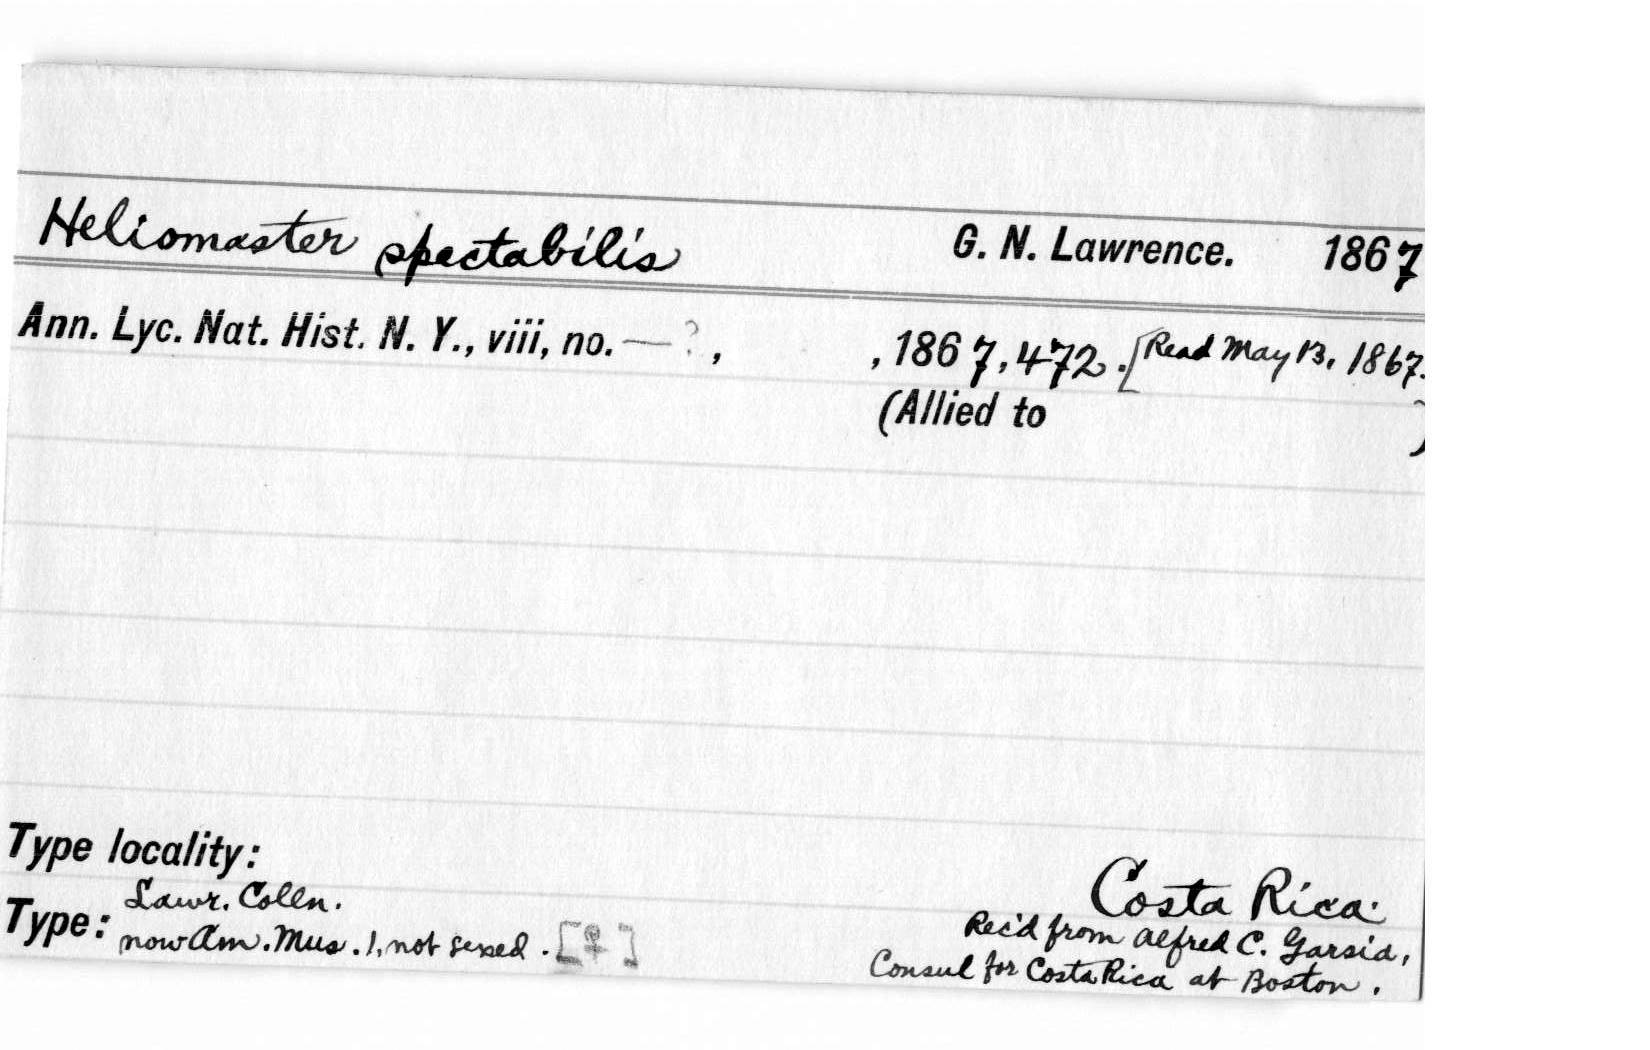 Heliomaster spectabilis G. N. Lawrence. 1867
Ann. Lyc. Nat. Hist. N. Y., viii, no. — ?, , 1867, 472. [Read May 13, 1867.
(Allied to )
Type locality:
Costa Rica.
Type: Lawr. Colln.
now Am. Mus. 1, not sexed. [♀]
Rec'd from Alfred C. Garsia,
Consul for Costa Rica at Boston.